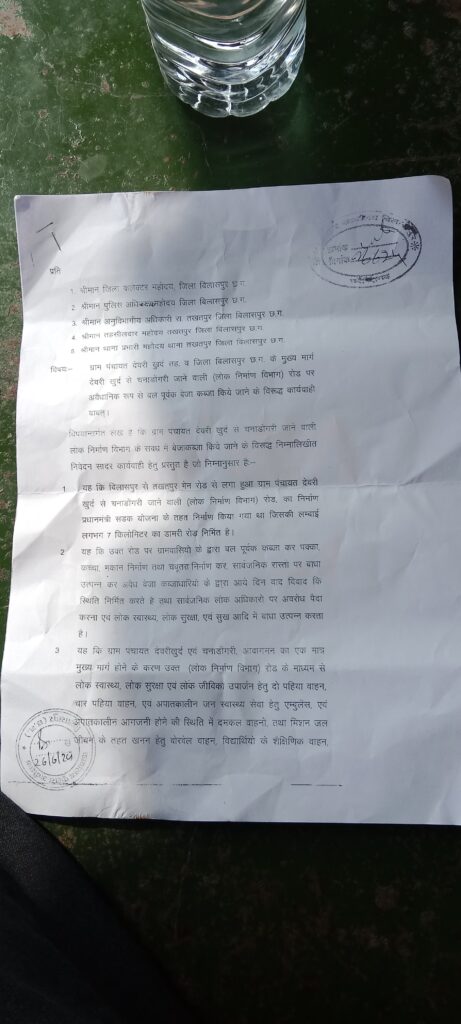 प्रति
1. श्रीमान जिला कलेक्टर महोदय, जिला बिलासपुर छ.ग.
2. श्रीमान पुलिस अधि महोदय जिला बिलासपुर छ.ग.
3. श्रीमान अनुविभागीय अधिकारी रा तखतपुर जिला बिलासपुर छ.ग.
4 श्रीमान तहसीलदार महोदय तखतपुर जिला बिलासपुर छ.ग.
5 श्रीमान थाना प्रभारी महोदय थाना तखतपुर जिला बिलासपुर छ.ग.
विषयः– ग्राम पंचायत देवरी खुर्द तह. व जिला बिलासपुर छ.ग. के मुख्य मार्ग
देवरी खुर्द से चनाडोंगरी जाने वाली (लोक निर्माण विभाग) रोड पर
अवैधानिक रूप से बल पूर्वक बेजा कब्जा किये जाने के विरुद्ध कार्यवाही
बाबत्।
विषयान्तर्गत लेख है कि ग्राम पंचायत देवरी खुर्द से चनाडोंगरी जाने वाली
लोक निर्माण विभाग के सड़क में बेजाकब्जा किये जाने के विरुद्ध निम्नलिखित
निवेदन सादर कार्यवाही हेतु प्रस्तुत है जो निम्नानुसार हैः–
1 यह कि बिलासपुर से तखतपुर मेन रोड से लगा हुआ ग्राम पंचायत देवरी
खुर्द से चनाडोंगरी जाने वाली (लोक निर्माण विभाग) रोड, का निर्माण
प्रधानमंत्री सडक योजना के तहत निर्माण किया गया था जिसकी लम्बाई
लगभग 7 किलोमिटर का डामरी रोड़ निर्मित है।
2 यह कि उक्त रोड पर ग्रामवासियो के द्वारा बल पूर्वक कब्जा कर पक्का,
कच्चा, मकान निर्माण तथा चबुतरा निर्माण कर, सार्वजनिक रास्ता पर बाधा
उत्पन्न कर अवैध बेजा कब्जाधारियो के द्वारा आये दिन वाद विवाद कि
स्थिति निर्मित करते है तथा सार्वजनिक लोक अधिकारो पर अवरोध पैदा
करना एवं लोक स्वास्थ्य, लोक सुरक्षा, एवं सुख आदि मे बाधा उत्पन्न करता
है।
3 यह कि ग्राम पंचायत देवरीखुर्द एवं चनाडोंगरी, आवागमन का एक मात्र
मुख्य मार्ग होने के करण उक्त (लोक निर्माण विभाग) रोड के माध्यम से
लोक स्वास्थ्य, लोक सुरक्षा एवं लोक जीविको उपार्जन हेतु दो पहिया वाहन,
चार पहिया वाहन, एवं अपातकालीन जन स्वास्थ्य सेवा हेतु एम्बुलेंस, एवं
अपातकालीन आगजनी होने की स्थिति में दमकल वाहनो, तथा मिशन जल
जीवन के तहत खनन हेतु बोरवेल वाहन, विद्यार्थियो के शैक्षिणिक वाहन,
26/6/24